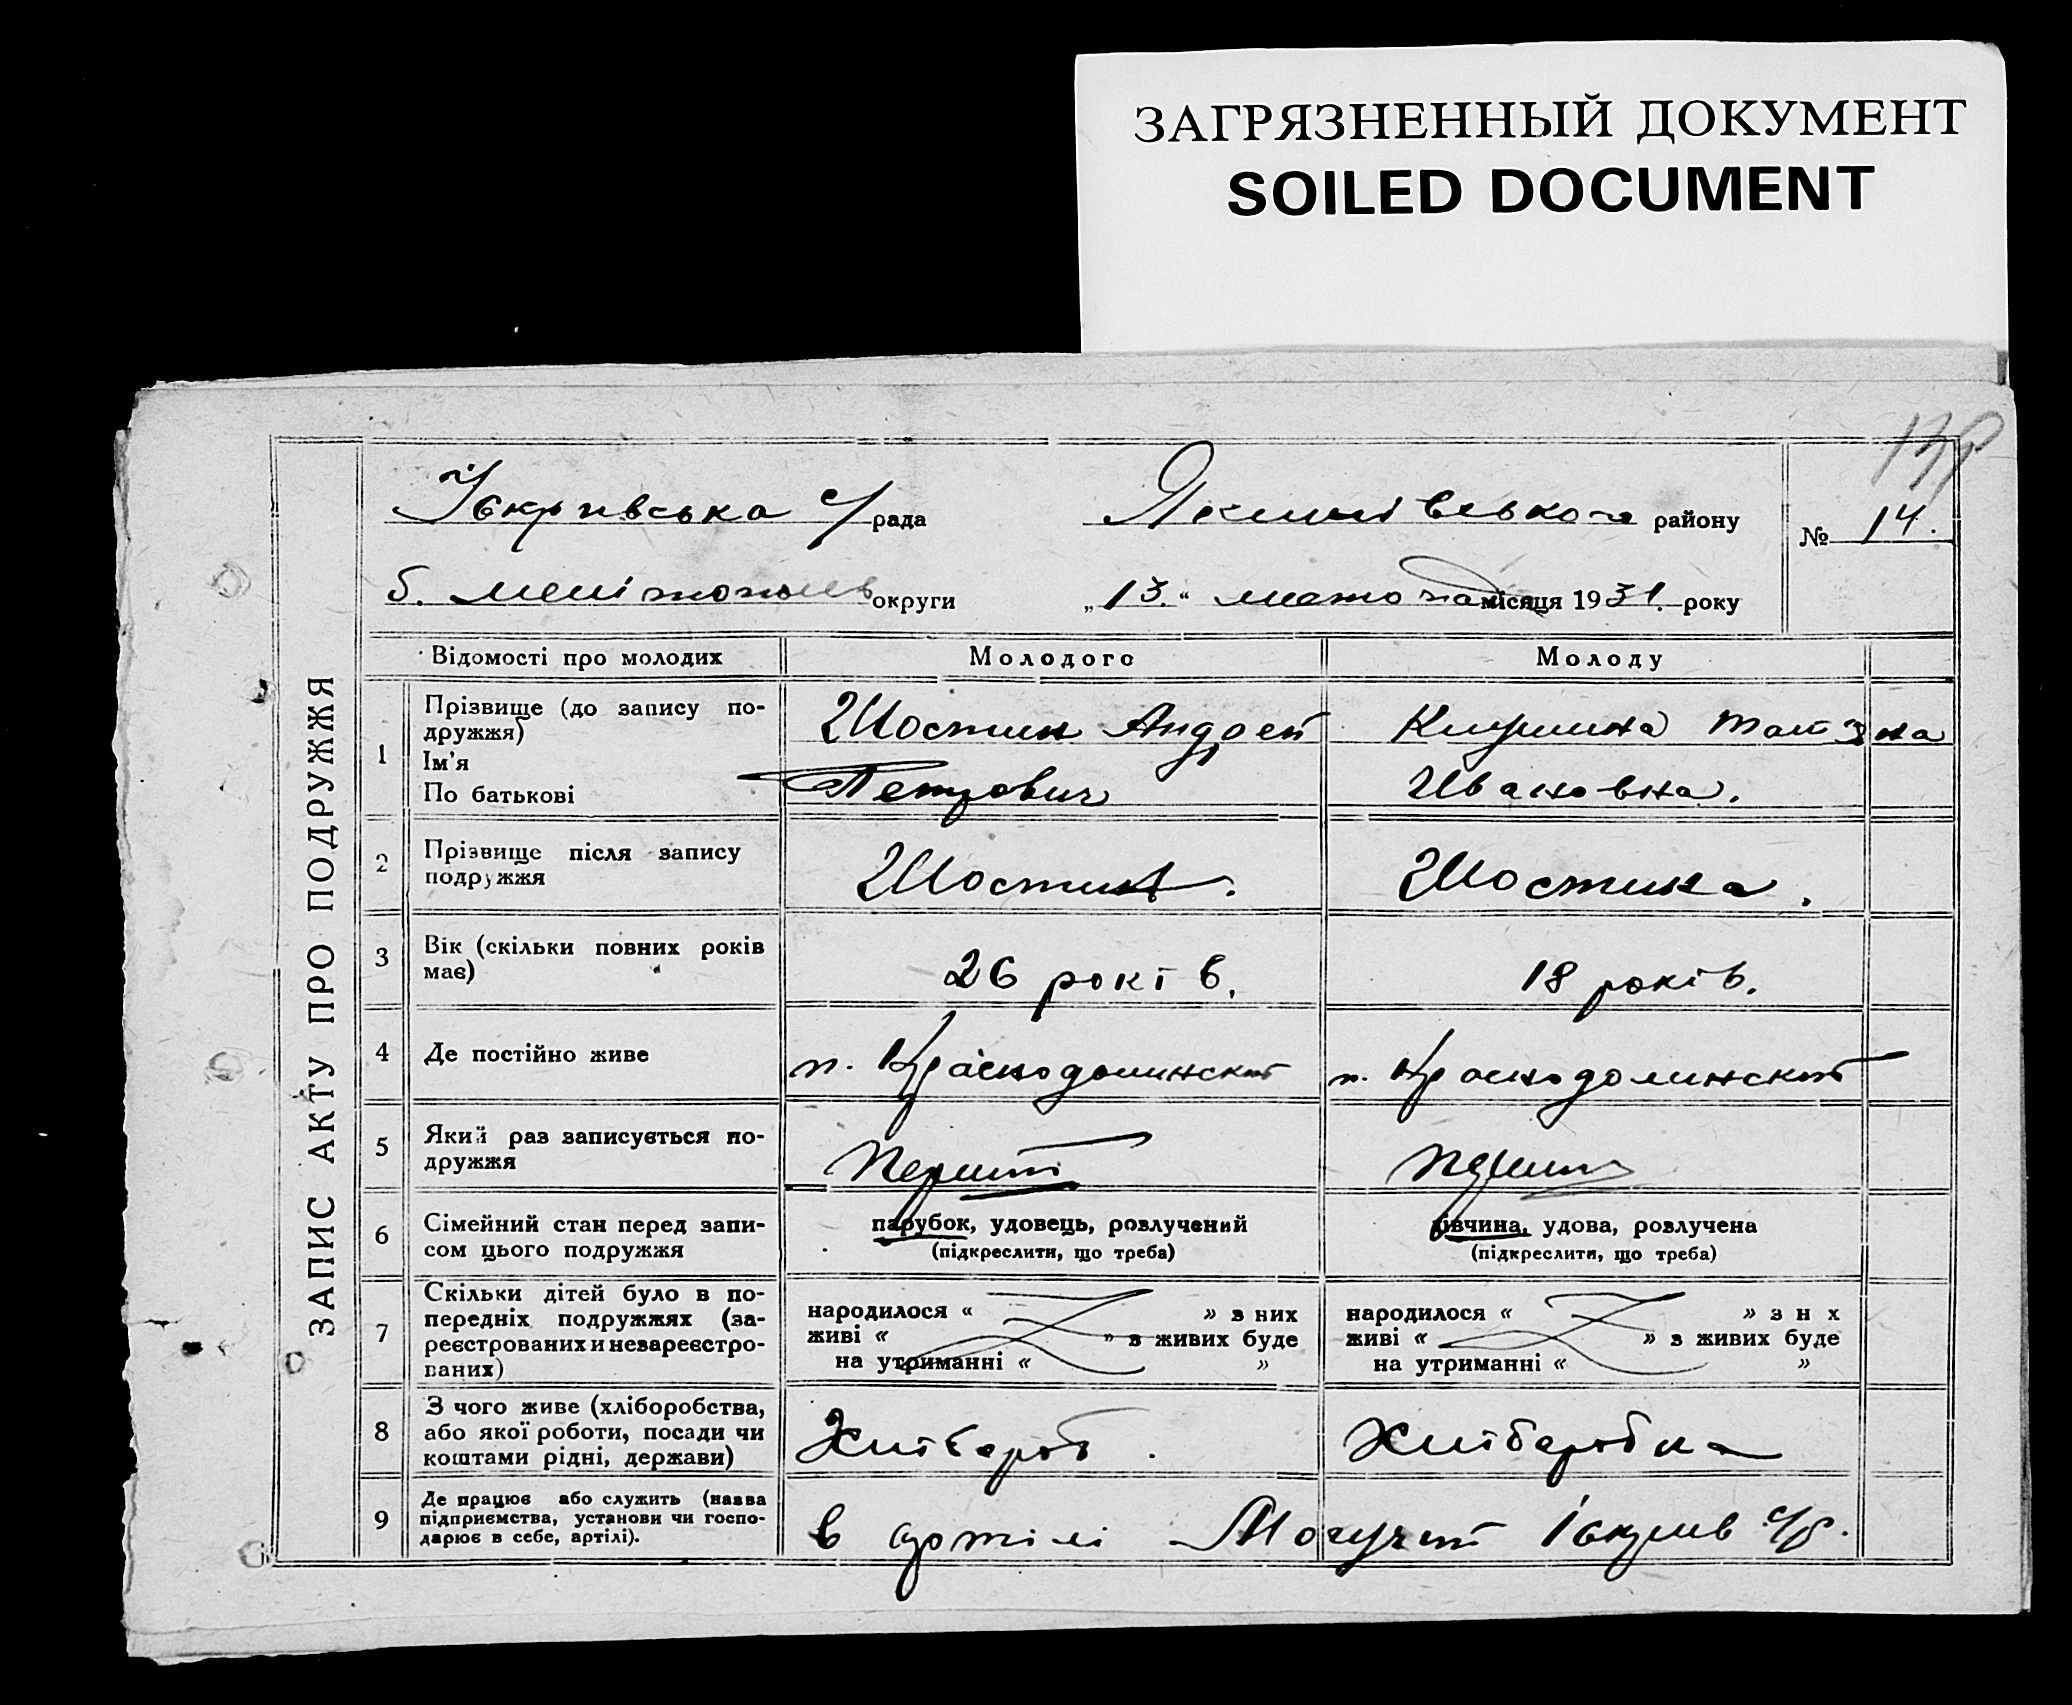 ЗАГРЯЗНЕННЫЙ ДОКУМЕНТ
SOILED DOCUMENT
ЗАПИС АКТУ ПРО ПОДРУЖЖЯ
с/рада
Якимівського району
№ 14.
б. Мелітопольс округи
„13.“ лютого місяця 1931. року
Відомості про молодих
Молодого
Молоду
1
Прізвище (до запису по-
дружжя)
Ім'я
По батькові
Шостик Андрей
Петрович
Ивановна.
2
Прізвище після запису
подружжя
Шостик.
Шостика.
3
Вік (скільки повних років
має)
26 років.
18 років.
4
Де постійно живе
п. Краснодолинский
п. Краснодолинский
5
Який раз записується по-
дружжя
Перший
Перший
6
Сімейний стан перед запи-
сом цього подружжя
парубок, удовець, розлучений
(підкреслити, що треба)
дівчина, удова, розлучена
(підкреслити, що треба)
7
Скільки дітей було в по-
передніх подружжях (за-
реєстрованих и незареєстро-
ваних)
народилося « » з них
живі « » з живих буде
на утриманні « »
народилося « » з н х
живі « » з живих буде
на утриманні « »
8
З чого живе (хліборобства,
або якої роботи, посади чи
коштами рідні, держави)
Хлібороб.
Хліборобка
9
Де працює або служить (назва
підприємства, установи чи госпо-
дарює в себе, артілі).
в артілі Могучий с/р.